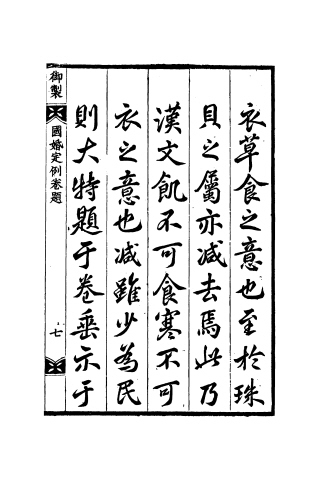 衣草食之意也至於珠
貝之屬亦減去焉此乃
漢文飢不可食寒不可
衣之意也減雖少為民
則大特題于卷垂示于
御製
國婚定例卷題
七